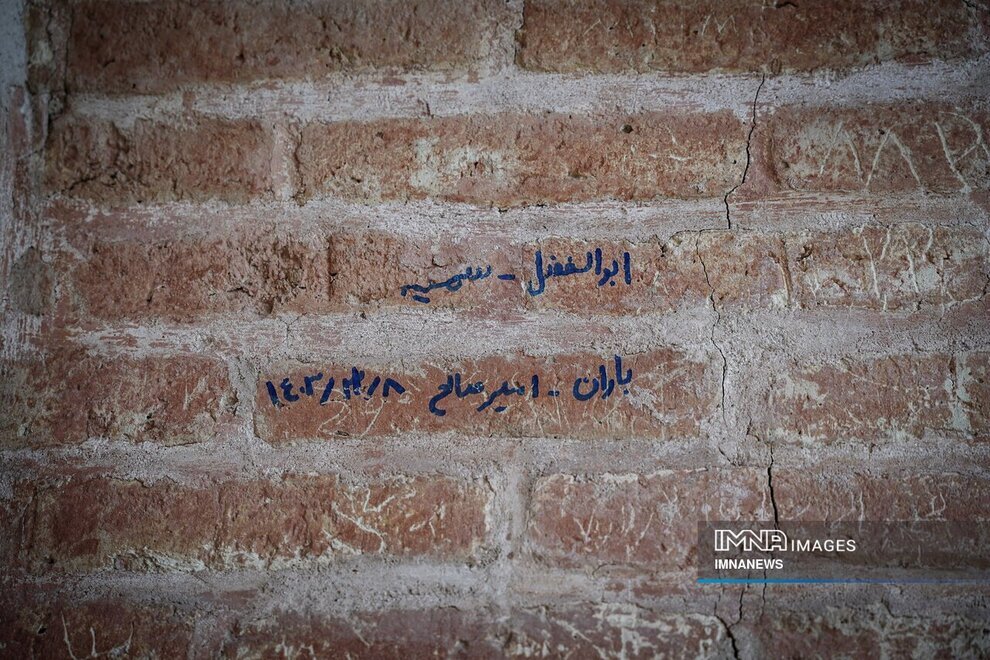 ابوالفضل - سمیه
باران - امیرصالح ۱۴۰۳/۱۲/۸
IMNA IMAGES
IMNANEWS